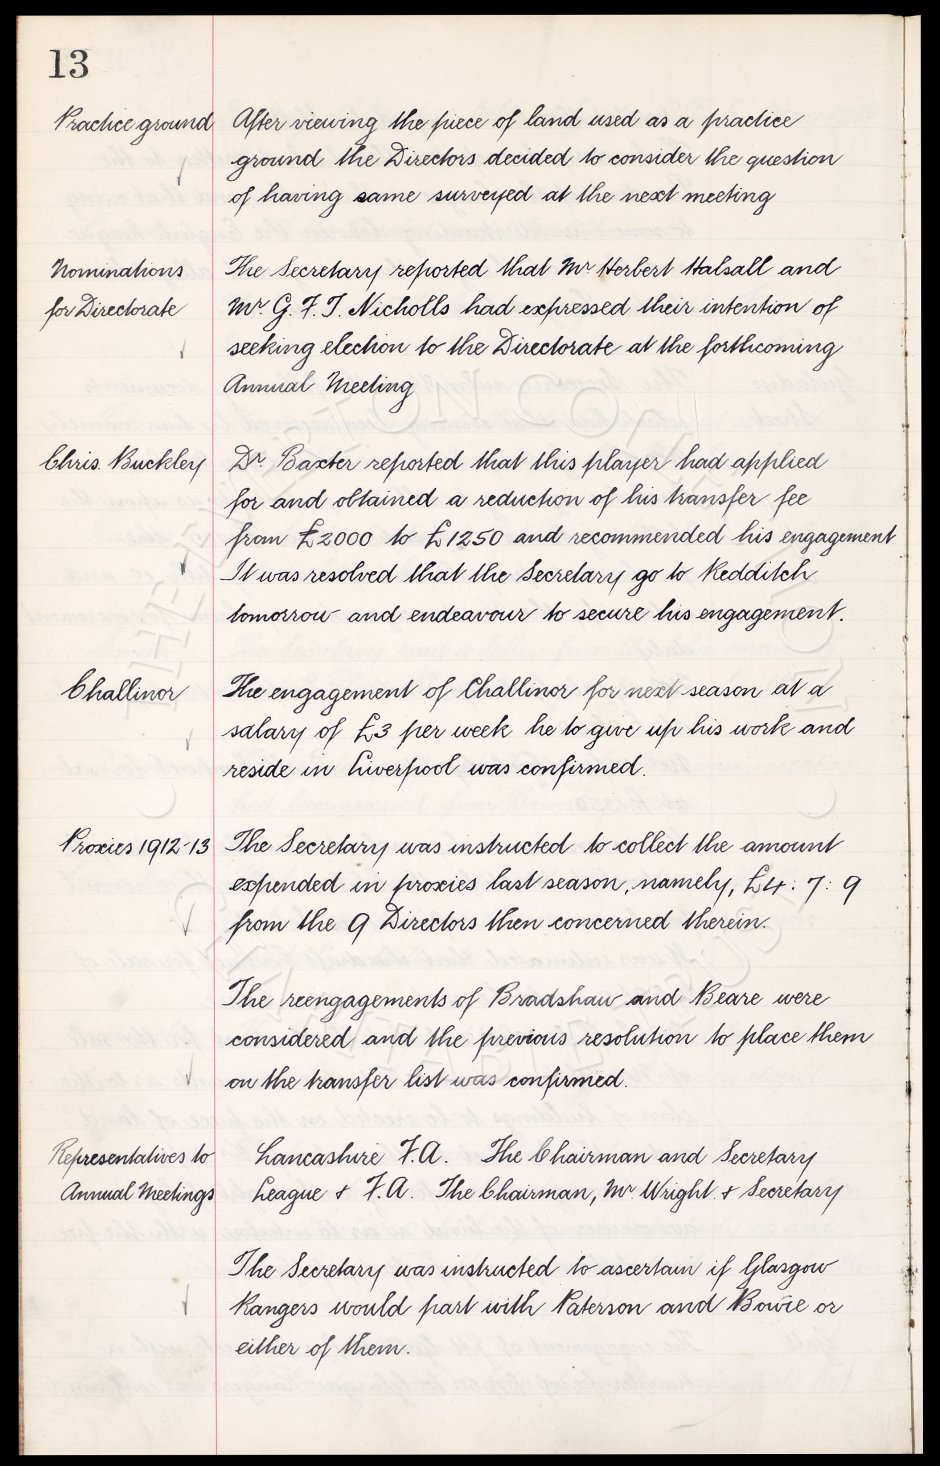 13
Practice ground
After viewing the piece of land used as a practice
ground the Directors decided to consider the question
of having same surveyed at the next meeting
Nominations
for Directorate
The Secretary reported that Mr Herbert Halsall and
Mr. G. F. T. Nicholls had expressed their intention of
seeking election to the Directorate at the forthcoming
Annual Meeting
Chris. Buckley
Dr. Baxter reported that this player had applied
for and obtained a reduction of his transfer fee
from £2000 to £1250 and recommended his engagement
It was resolved that the Secretary go to Redditch
tomorrow and endeavour to secure his engagement.
Challinor
The engagement of Challinor for next season at a
salary of £3 per week he to give up his work and
reside in Liverpool was confirmed.
Proxies 1912-13
The Secretary was instructed to collect the amount
expended in proxies last season, namely, £4 : 7 : 9
from the 9 Directors then concerned therein.
The reengagements of Bradshaw and Beare were
considered and the previous resolution to place them
on the transfer list was confirmed.
Representatives to
Annual Meetings
Lancashire F.A. The Chairman and Secretary
League & F.A. The Chairman, Mr. Wright & Secretary
The Secretary was instructed to ascertain if Glasgow
Rangers would part with Paterson and Bowie or
either of them.